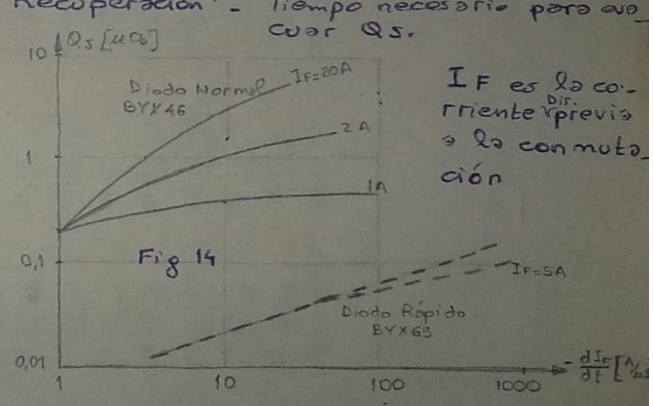 Recuperación - Tiempo necesario para eva_
cuar Qs.
Qs [μCb]
10
Diodo Normal
BYX46
IF=20A
IF es la co-
rriente Dir. previa
a la conmuta_
ción
2A
1
1A
Fig 14
0,1
IF=5A
Diodo Rápido
BYX63
0,01
1
10
100
1000
- dIF/dt [A/μs